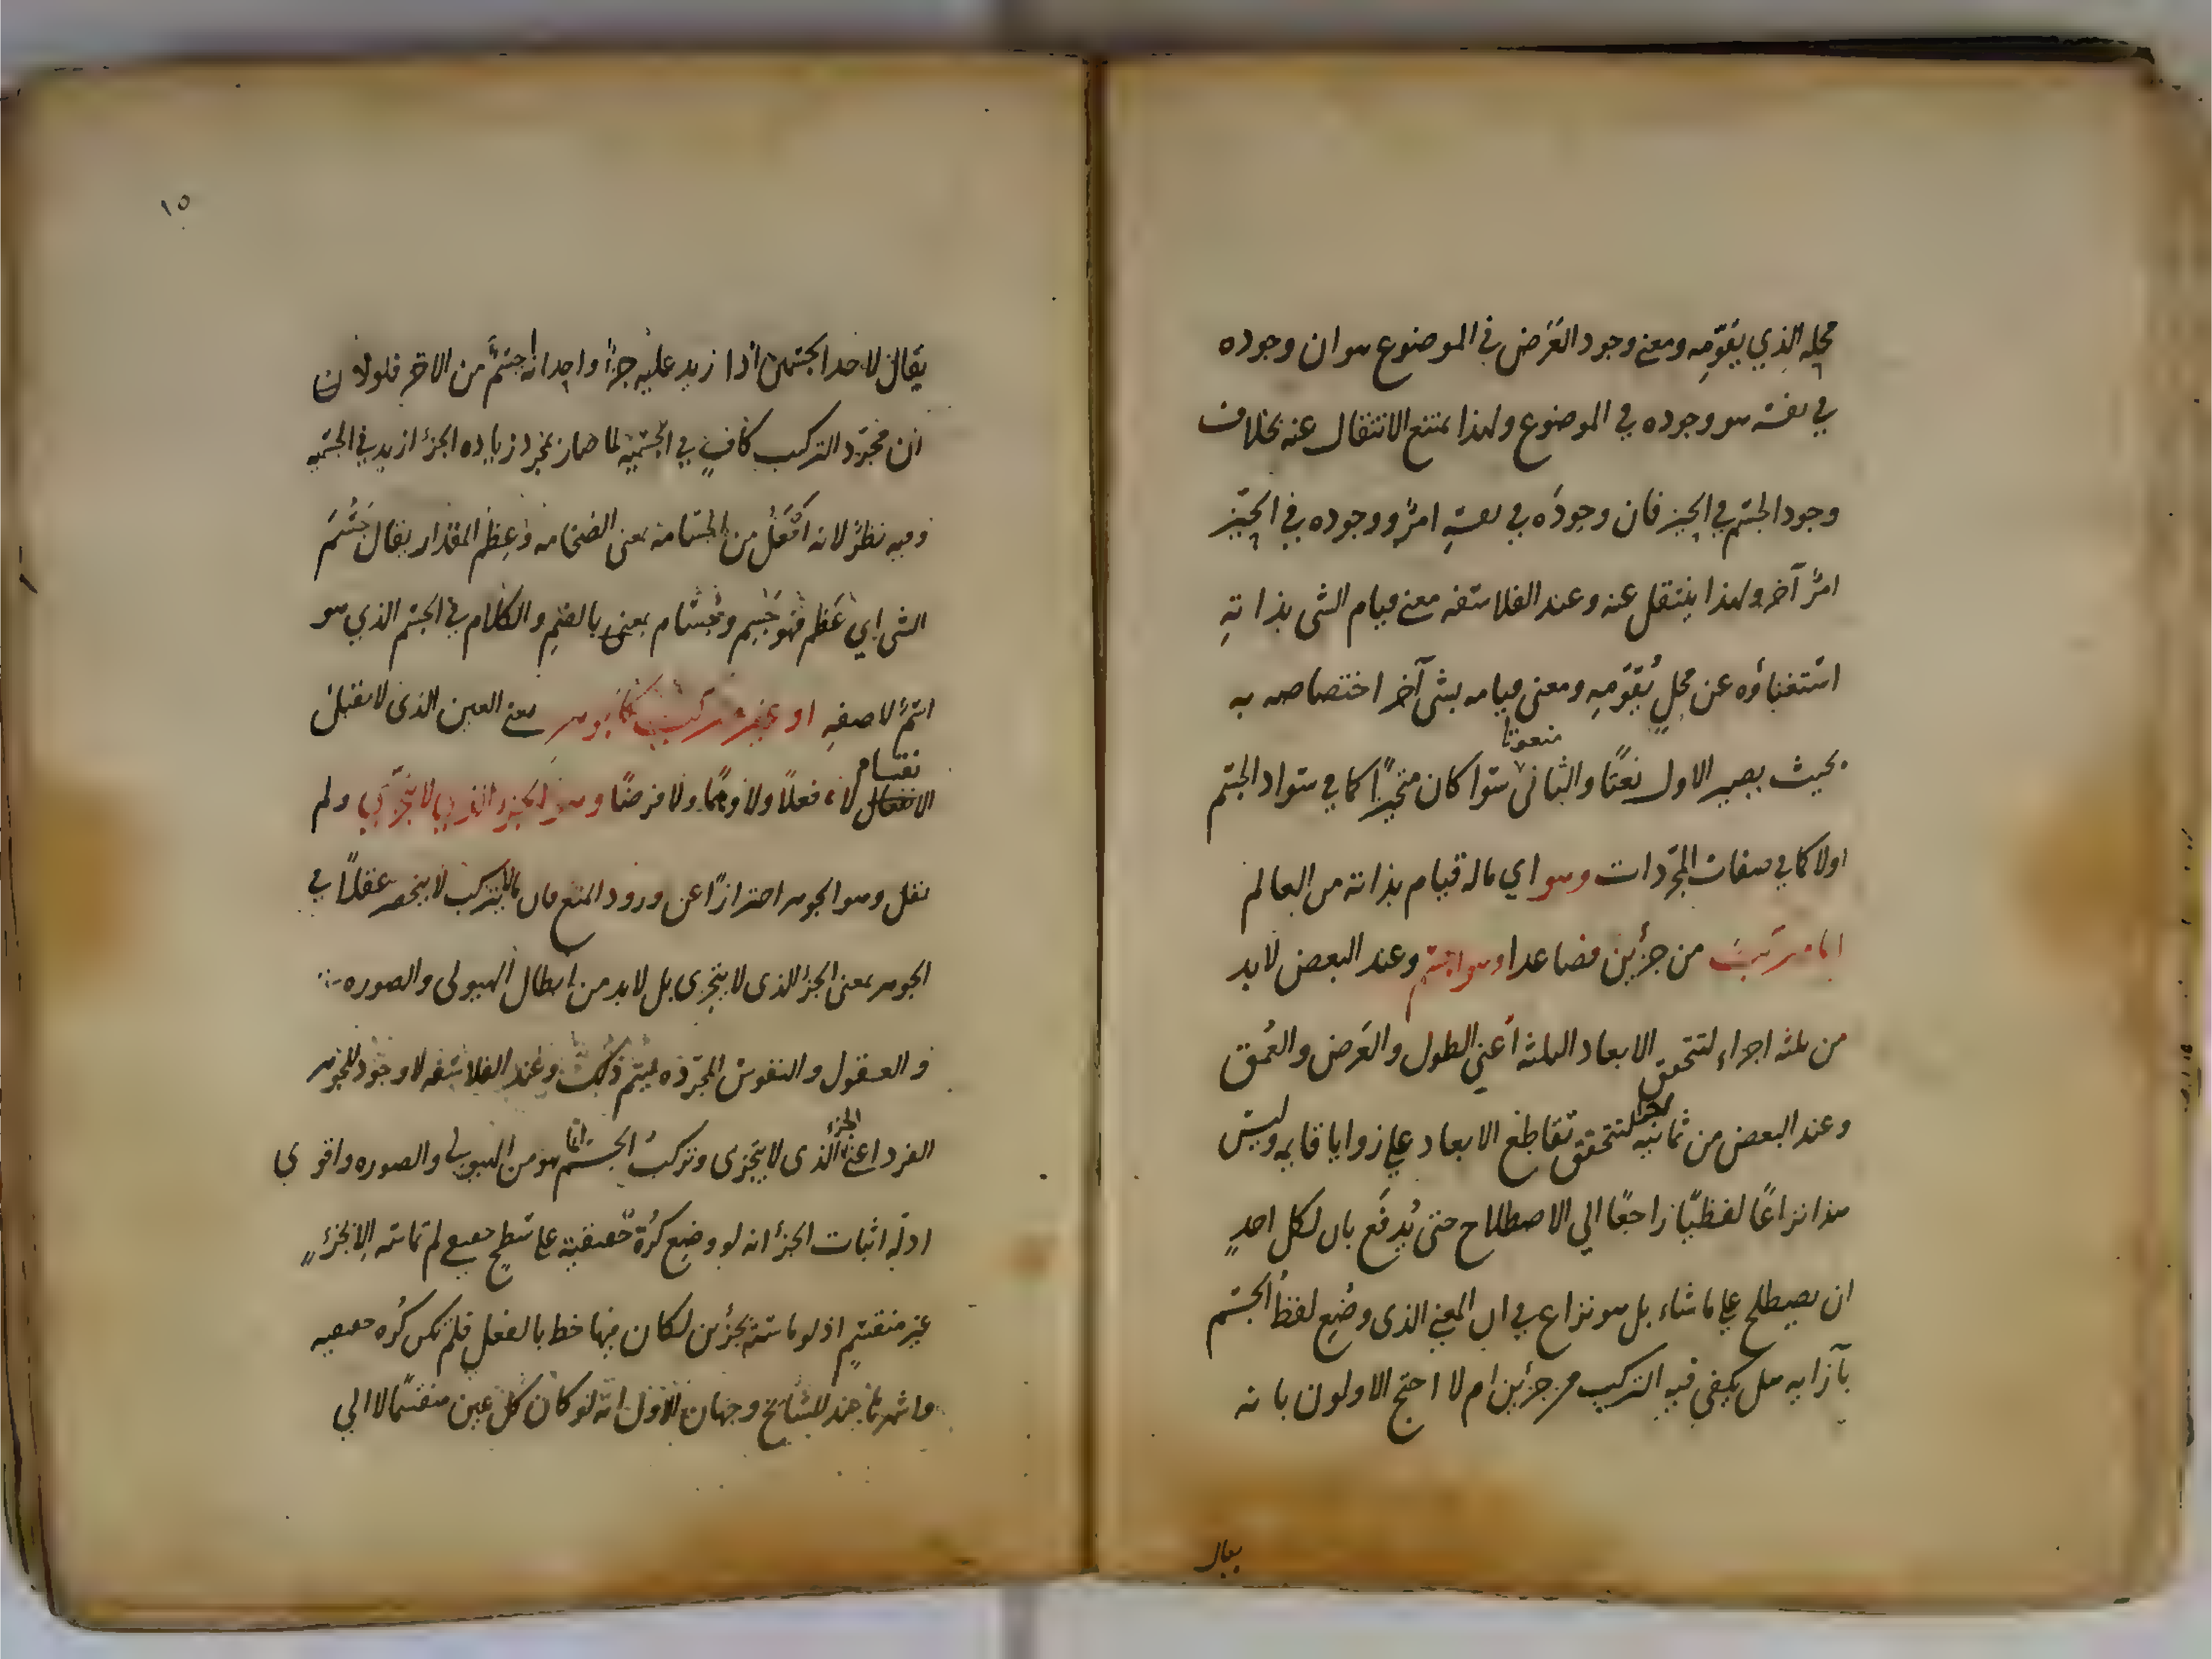 محله الذي يقومه ومعنى وجود العرض في الموضوع هو ان وجوده
في نفسه هو وجوده في الموضوع ولهذا يمتنع الانتقال عنه بخلاف
وجود الجسم في الحيز فان وجوده في نفسه امر ووجوده في الحيز
امر آخر ولهذا ينتقل عنه وعند الفلاسفه معنى قيام الشى بذاته
استغناؤه عن محل يقومه ومعنى قيامه بشى آخر اختصاصه به
بحيث يصير الاول نعتا والثانى منعوتا سوا كان متحيزا كما في سواد الجسم
اولا كما في صفات المجردات وهو اي ماله قيام بذاته من العالم
اما مركب من جزئين فصاعدا وهو الجسم وعند البعض لابد
من ثلثه اجزاء لتتحقق الابعاد الثلثه اعني الطول والعرض والعمق
وعند البعض من ثمانيه اجزا لتتحقق تقاطع الابعاد علي زوايا قايمه وليس
هذا نزاعا لفظيا راجعا الي الاصطلاح حتى يدفع بان لكل احد
ان يصطلح علي ما شاء بل هو نزاع في ان المعني الذى وضع لفظ الجسم
بآزايه هل يكفي فيه التركيب من جزئين ام لا احتج الاولون بانه
يقال
١٥
يقال لاحد الجسمين اذا زيد عليه جزأ واحد انه اجسم من الاخر فلولا ان
ان مجرد التركيب كاف في الجسميه لما صار بمجرد زياده الجزء ازيد في الجسميه
وفيه نظر لانه افعل من الجسامه بمعنى الضخامه وعظم المقدار يقال جسم
الشى اي عظم فهو جسيم وجسام بمعنى بالضم والكلام في الجسم الذي هو
اسم لا صفه او غير مركب كالجوهر يعنى العين الذى لا يقبل
الانقسام لا فعلا ولا وهما ولا فرضا وهو الجزء الذي لا يتجزي ولم
يقل وهو الجوهر احترازا عن ورود المنع فان مالا يتركب لا ينحصر عقلا في
الجوهر بمعنى الجزء الذى لا يتجزى بل لابد من ابطال الهيولى والصوره
والعقول والنفوس المجرده ليتم ذلك وعند الفلاسفه لا وجود للجوهر
الفرد اعني الجزء الذى لا يتجزى وتركب الجسم انما هو من الهيولي والصوره واقوي
ادله اثبات الجزء انه لو وضع كره حقيقيه علي سطح حقيقي لم تماسه الا بجزء
غير منقسم اذ لو ماسته بجزئين لكان فيها خط بالفعل فلم تكن كره حقيقيه
واشهرها عند المشايخ وجهان الاول انه لو كان كل عين منقسما لا الي